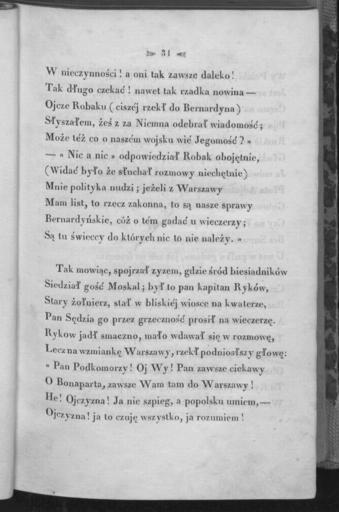 31
W nieczynności! a oni tak zawsze daleko!
Tak długo czekać! nawet tak rzadka nowina —
Ojcze Robaku (ciszéj rzekł do Bernardyna)
Słyszałem, żeś z za Niemna odebrał wiadomość;
Może téż co o naszém wojsku wié Jegomość? »
— « Nic a nic » odpowiedział Robak obojętnie,
(Widać było że słuchał rozmowy niechętnie)
Mnie polityka nudzi; jeżeli z Warszawy
Mam list, to rzecz zakonna, to są nasze sprawy
Bernardyńskie, cóż o tém gadać u wieczerzy;
Są tu świeccy do których nic to nie należy. »
Tak mowiąc, spojrzał zyzem, gdzie śród biesiadników
Siedział gość Moskal; był to pan kapitan Ryków,
Stary żołnierz, stał w bliskiéj wiosce na kwaterze,
Pan Sędzia go przez grzeczność prosił na wieczerzę.
Rykow jadł smaczno, mało wdawał się w rozmowę,
Lecz na wzmiankę Warszawy, rzekł podniosłszy głowę:
« Pan Podkomorzy! Oj Wy! Pan zawsze ciekawy
O Bonaparta, zawsze Wam tam do Warszawy!
He! Ojczyzna! Ja nie szpieg, a popolsku umiem, —
Ojczyzna! ja to czuję wszystko, ja rozumiem!